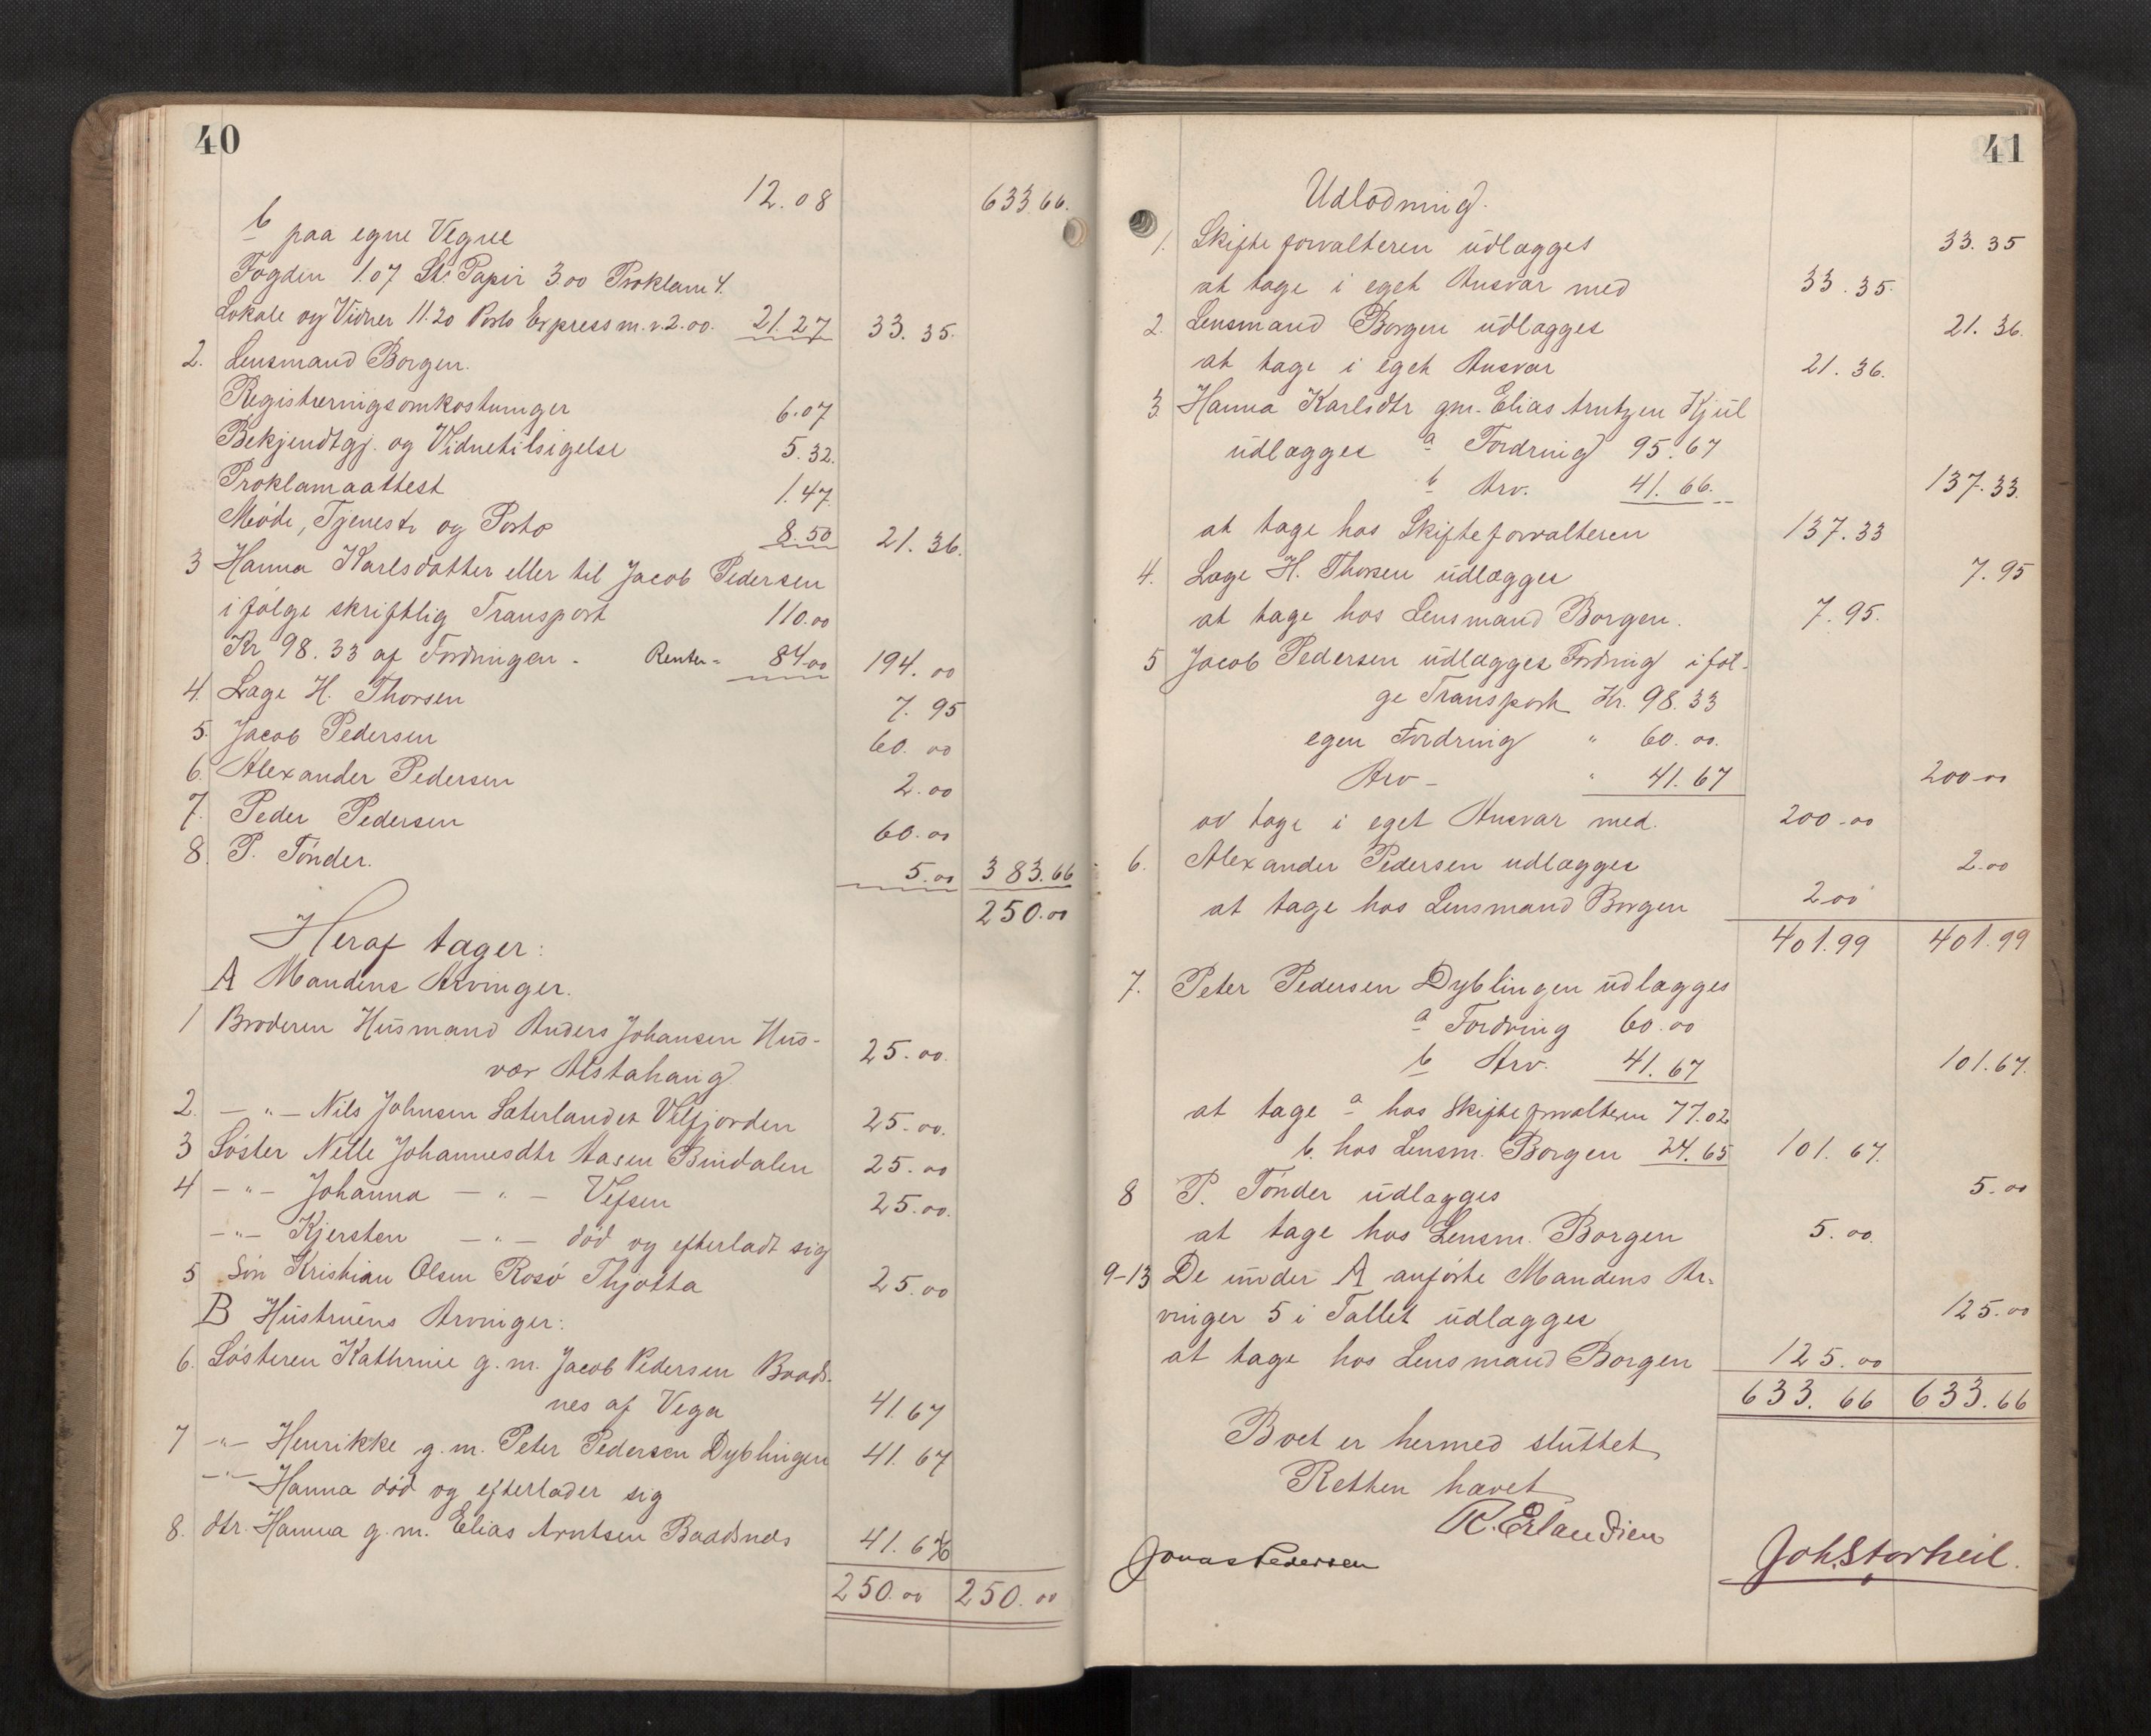 40
12.08 633.66.
b paa egne Vegne
Fogden 1.07 St. Papir 3.00 Proklam 4.
Lokale og Vidner 11.20 Porto Express m.v. 2.00. 21.27 33.35.
2. Lensmand Borgen.
Registreringsomkostninger 6.07
Bekjendtgj. og Vidnetilsigelse 5.32.
Proklamaattest 1.47.
Møde, Tjeneste og Porto 8.50 21.36.
3 Hanna Karlsdatter eller til Jacob Pedersen
ifølge skriftlig Transport 110.00
Kr 98.33 af Fordringen - Renter - 84.00 194.00
4. Lage H. Thorsen 7.95
5. Jacob Pedersen 60.00
6. Alexander Pedersen 2.00
7. Peder Pedersen 60.00
8. P. Tønder. 5.00 383.66
250.00
Heraf tager:
A Mandens Arvinger.
1 Broderen Husmand Anders Johansen Hus-
vær Alstahaug 25.00.
2. —"— Nils Johnsen Sæterlandet Velfjorden 25.00.
3 Søster Nelle Johannesdtr Aasen Bindalen 25.00
4 —"— Johanna —"— Vefsen 25.00.
—"— Kjersten —"— død og efterladt sig
5 Søn Kristian Olsen Rosø Thjøtta 25.00
B Hustruens Arvinger:
6. Søsteren Kathrine g.m. Jacob Pedersen Baads-
nes af Vega 41.67
7 —"— Henrikke g.m. Peter Pedersen Dyblingen 41.67
—"— Hanna død og efterlader sig
8. dtr. Hanna g.m. Elias Arntsen Baadsnes 41.66
250.00 250.00
41
Udlodning.
1. Skifteforvalteren udlægges 33.35
at tage i eget Ansvar med 33.35.
2. Lensmand Borgen udlægges 21.36.
at tage i eget Ansvar 21.36.
3. Hanna Karlsdtr gm. Elias Arntzen Kjul
udlægges a Fordring 95.67
b Arv. 41.66. 137.33.
at tage hos Skifteforvalteren 137.33
4. Lage H. Thorsen udlægges 7.95
at tage hos Lensmand Borgen. 7.95.
5 Jacob Pedersen udlægges Fordring iføl-
ge Transport Kr. 98.33
egen Fordring " 60.00.
Arv - " 41.67 200.00
at tage i eget Ansvar med. 200.00
6. Alexander Pedersen udlægges 2.00
at tage hos Lensmand Borgen 2.00
401.99 401.99
7. Peter Pedersen Dyblingen udlægges
a Fordring 60.00
b Arv. 41.67 101.67.
at tage a hos Skifteforvalteren 77.02
b. hos Lensm. Borgen 24.65 101.67.
8 P. Tønder udlægges 5.00
at tage hos Lensm. Borgen 5.00.
9-13 De under A anførte Mandens Ar-
vinger 5 i Tallet udlægges 125.00
at tage hos Lensmand Borgen 125.00
633.66 633.66
Boet er hermed sluttet
Retten hævet
R. Erlandsen
Jonas Pedersen Joh. Storheil.